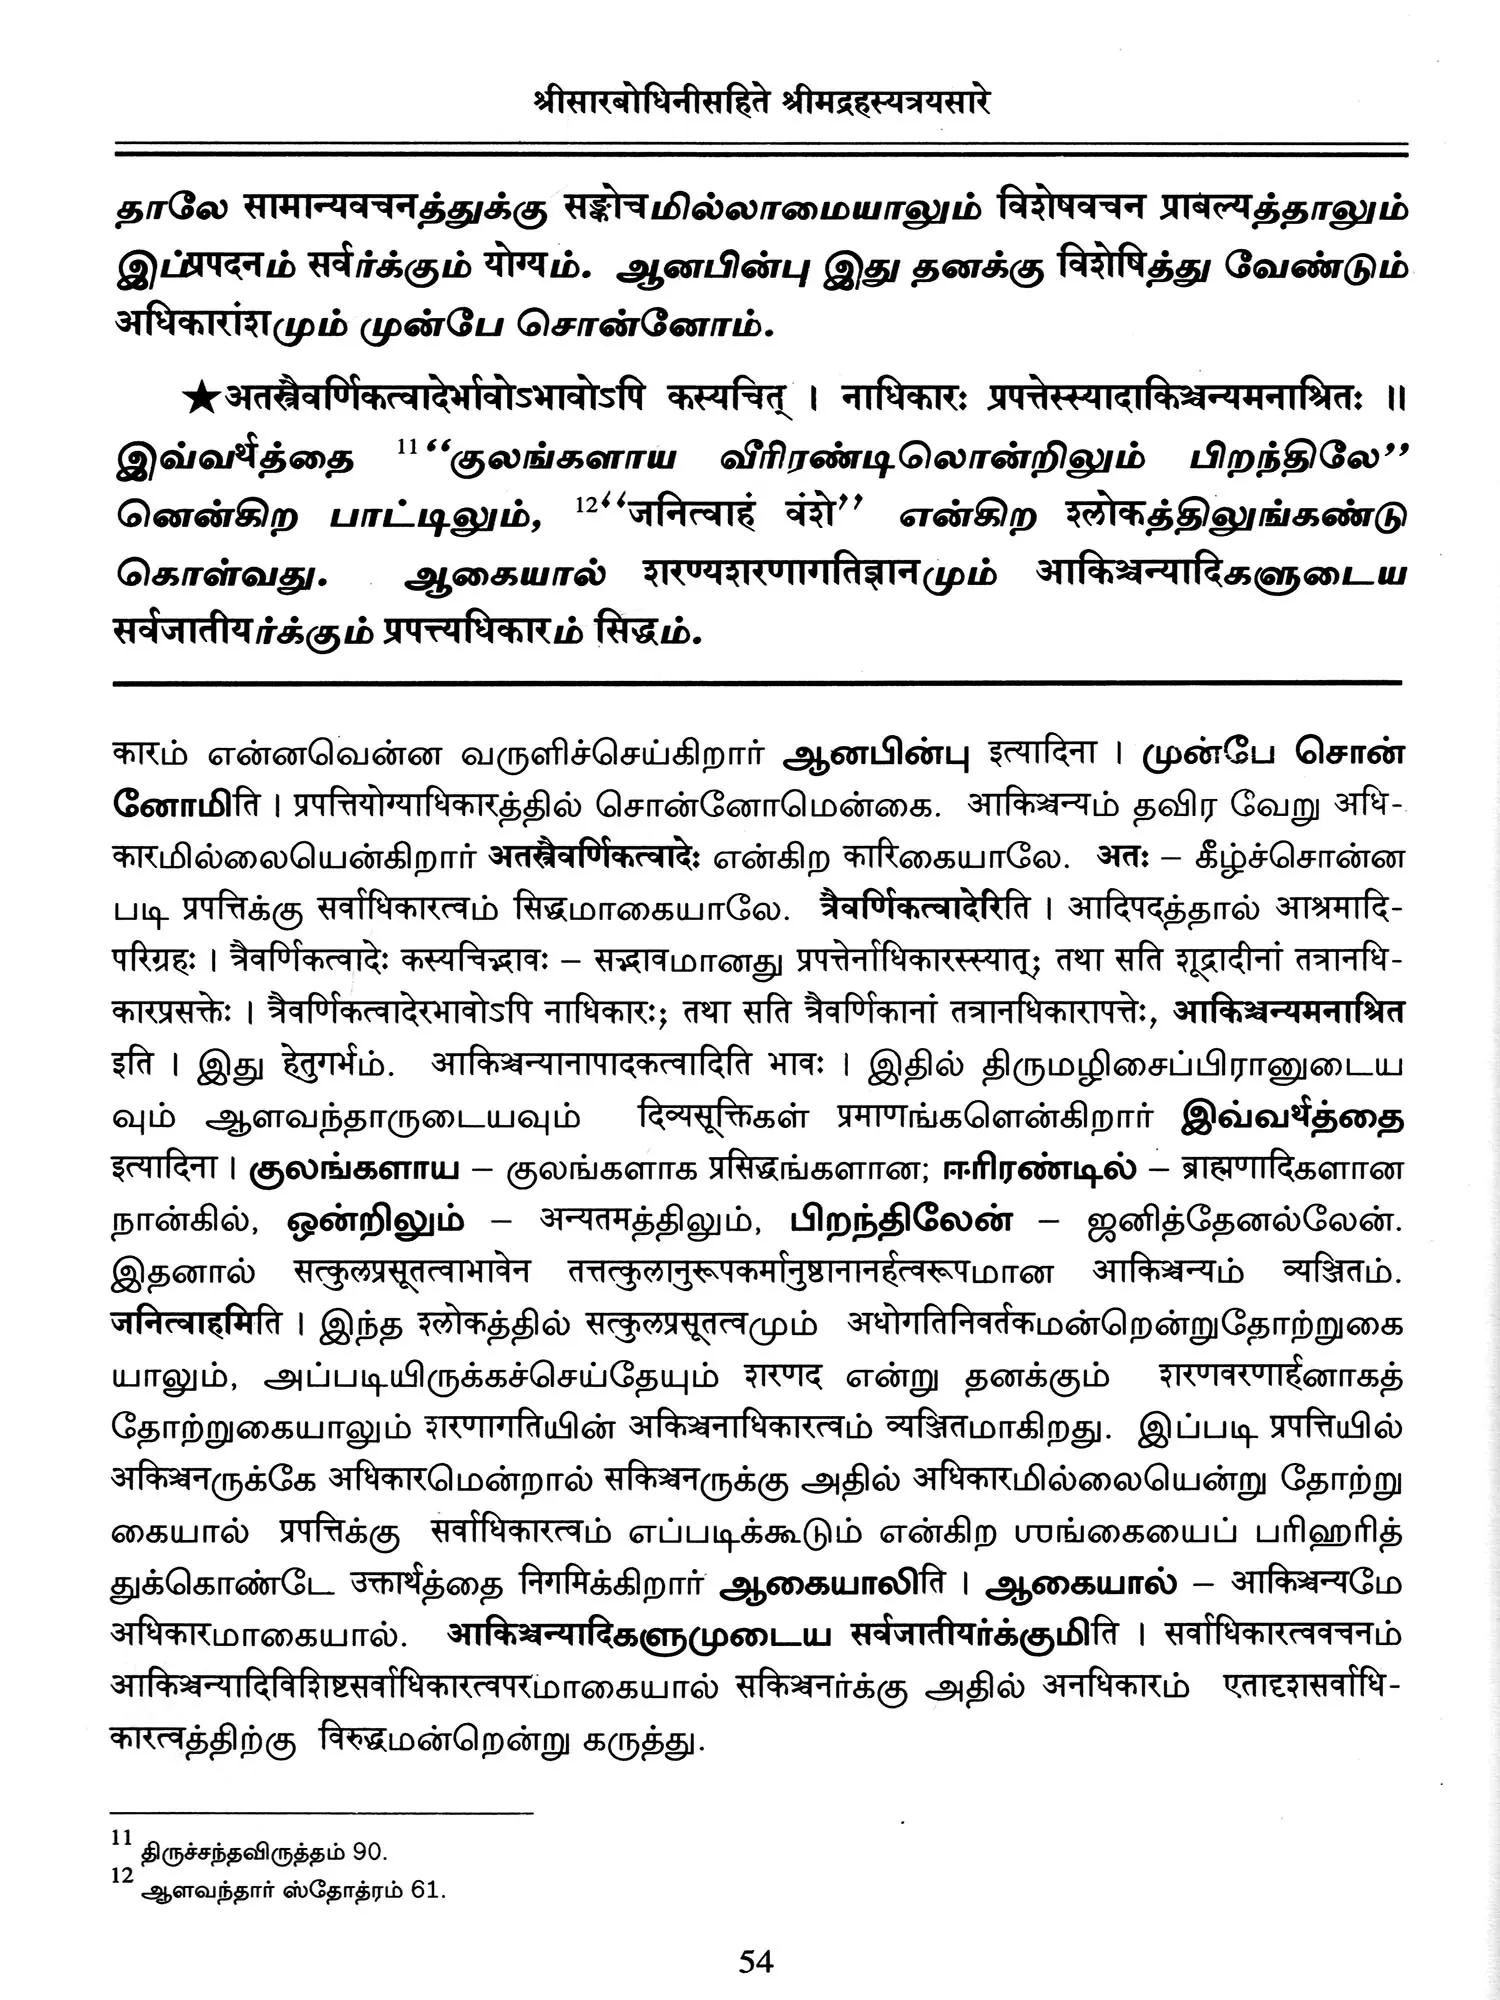 श्रीसारबोधिनीसहिते श्रीमद्रहस्यत्रयसारे
தாலே सामान्यवचनத்துக்கு सङ्कोचமில்லாமையாலும் विशेषवचन प्राबल्यத்தாலும்
இப்प्रपदनம் सर्वர்க்கும் योग्यம். ஆனபின்பு இது தனக்கு विशेषिத்து வேண்டும்
अधिकारांशமும் முன்பே சொன்னோம்.
★अतस्त्रैवर्णिकत्वादेर्भावोऽभावोऽपि कस्यचित् । नाधिकारः प्रपत्तेस्स्यादाकिञ्चन्यमनाश्रितः ॥
இவ்வर्थத்தை 11 “குலங்களாய வீரிரண்டிலொன்றிலும் பிறந்திலே”
னென்கிற பாட்டிலும், 12“जनित्वाहं वंशे” என்கிற श्लोकத்திலுங்கண்டு
கொள்வது. ஆகையால் शरण्यशरणागतिज्ञानமும் आकिञ्चन्यादिகளுடைய
सर्वजातीयர்க்கும் प्रपत्त्यधिकारம் सिद्धம்.
कारம் என்னவென்ன வருளிச்செய்கிறார் ஆனபின்பு इत्यादिना । முன்பே சொன்
னோமிति । प्रपत्तियोग्याधिकारத்தில் சொன்னோமென்கை. आकिञ्चन्यம் தவிர வேறு अधि-
कारமில்லையென்கிறார் अतस्त्रैवर्णिकत्वादेः என்கிற कारिகையாலே. अतः – கீழ்ச்சொன்ன
படி प्रपत्तिக்கு सर्वाधिकारत्वம் सिद्धமாகையாலே. त्रैवर्णिकत्वादेरिति । आदिपदத்தால் आश्रमादि-
परिग्रहः । त्रैवर्णिकत्वादेः कस्यचिद्भावः – सद्भावமானது प्रपत्तेर्नाधिकारस्स्यात्; तथा सति शूद्रादीनां तत्रानधि-
कारप्रसक्तेः । त्रैवर्णिकत्वादेरभावोऽपि नाधिकारः; तथा सति त्रैवर्णिकानां तत्रानधिकारापत्तेः, आकिञ्चन्यमनाश्रित
इति । இது हेतुगर्भம். आकिञ्चन्यानापादकत्वादिति भावः । இதில் திருமழிசைப்பிரானுடைய
வும் ஆளவந்தாருடையவும் दिव्यसूक्तिகள் प्रमाणங்களென்கிறார் இவ்வर्थத்தை
इत्यादिना । குலங்களாய – குலங்களாக प्रसिद्धங்களான; ஈரிரண்டில் – ब्राह्मणादिகளான
நான்கில், ஒன்றிலும் – अन्यतमத்திலும், பிறந்திலேன் – ஜனித்தேனல்லேன்.
இதனால் सत्कुलप्रसूतत्वाभावेन तत्तत्कुलानुरूपकर्मानुष्ठानानर्हत्वरूपமான आकिञ्चन्यம் व्यञ्जितம்.
जनित्वाहमिति । இந்த श्लोकத்தில் सत्कुलप्रसूतत्वமும் अधोगतिनिवर्तकமன்றென்றுதோற்றுகை
யாலும், அப்படியிருக்கச்செய்தேயும் शरणद என்று தனக்கும் शरणवरणार्हனாகத்
தோற்றுகையாலும் शरणागतिயின் अकिञ्चनाधिकारत्वம் व्यञ्जितமாகிறது. இப்படி प्रपत्तिயில்
अकिञ्चनருக்கே अधिकारமென்றால் सकिञ्चनருக்கு அதில் अधिकारமில்லையென்று தோற்று
கையால் प्रपत्तिக்கு सर्वाधिकारत्वம் எப்படிக்கூடும் என்கிற ஶங்கையைப் பரிஹரித்
துக்கொண்டே उक्तार्थத்தை निगमिக்கிறார் ஆகையாலிति । ஆகையால் – आकिञ्चन्यமே
अधिकारமாகையால். आकिञ्चन्यादिகளுமுடைய सर्वजातीयர்க்குமிति । सर्वाधिकारत्ववचनம்
आकिञ्चन्यादिविशिष्टसर्वाधिकारत्वपरமாகையால் सकिञ्चनர்க்கு அதில் अनधिकारம் एतादृशसर्वाधि-
कारत्वத்திற்கு विरुद्धமன்றென்று கருத்து.
11 திருச்சந்தவிருத்தம் 90.
12 ஆளவந்தார் ஸ்தோத்ரம் 61.
54